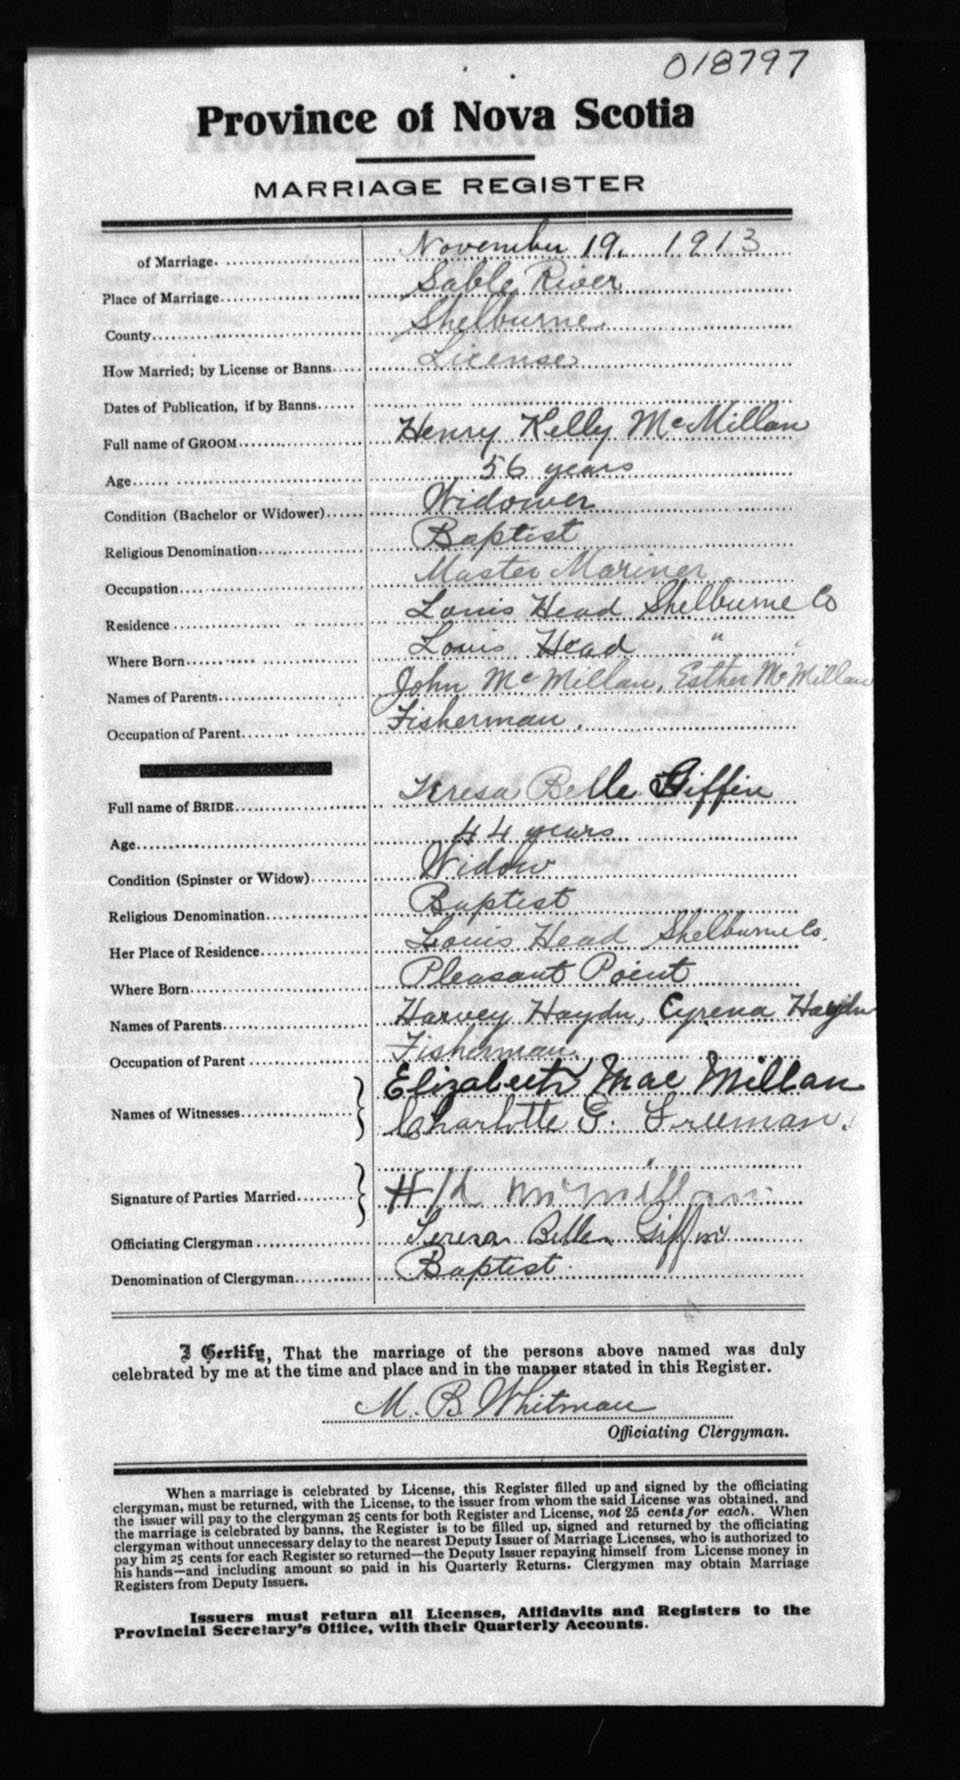 018797
Province of Nova Scotia
MARRIAGE REGISTER
of Marriage. November 19, 1913
Place of Marriage Sable River
County Shelburne
How Married; by License or Banns License
Dates of Publication, if by Banns
Full name of GROOM Henry Kelly McMillan
Age 56 years
Condition (Bachelor or Widower) Widower
Religious Denomination Baptist
Occupation Master Mariner
Residence Louis Head Shelburne Co
Where Born Louis Head "
Names of Parents John McMillan, Esther McMillan
Occupation of Parent Fisherman.
Full name of BRIDE Teresa Belle Giffin
Age 44 years
Condition (Spinster or Widow) Widow
Religious Denomination Baptist
Her Place of Residence Louis Head Shelburne Co.
Where Born Pleasant Point
Names of Parents Harvey Haydn, Cyrena Haydn
Occupation of Parent Fisherman.
Names of Witnesses Elizabeth Mac Millan
Charlotte G. Freeman.
Signature of Parties Married H K McMillan
Officiating Clergyman Teresa Belle Giffin
Denomination of Clergyman Baptist.
I Certify, That the marriage of the persons above named was duly
celebrated by me at the time and place and in the manner stated in this Register.
M. B. Whitman
Officiating Clergyman.
When a marriage is celebrated by License, this Register filled up and signed by the officiating
clergyman, must be returned, with the License, to the issuer from whom the said License was obtained, and
the issuer will pay to the clergyman 25 cents for both Register and License, not 25 cents for each. When
the marriage is celebrated by banns, the Register is to be filled up, signed and returned by the officiating
clergyman without unnecessary delay to the nearest Deputy Issuer of Marriage Licenses, who is authorized to
pay him 25 cents for each Register so returned—the Deputy Issuer repaying himself from License money in
his hands—and including amount so paid in his Quarterly Returns. Clergymen may obtain Marriage
Registers from Deputy Issuers.
Issuers must return all Licenses, Affidavits and Registers to the
Provincial Secretary's Office, with their Quarterly Accounts.